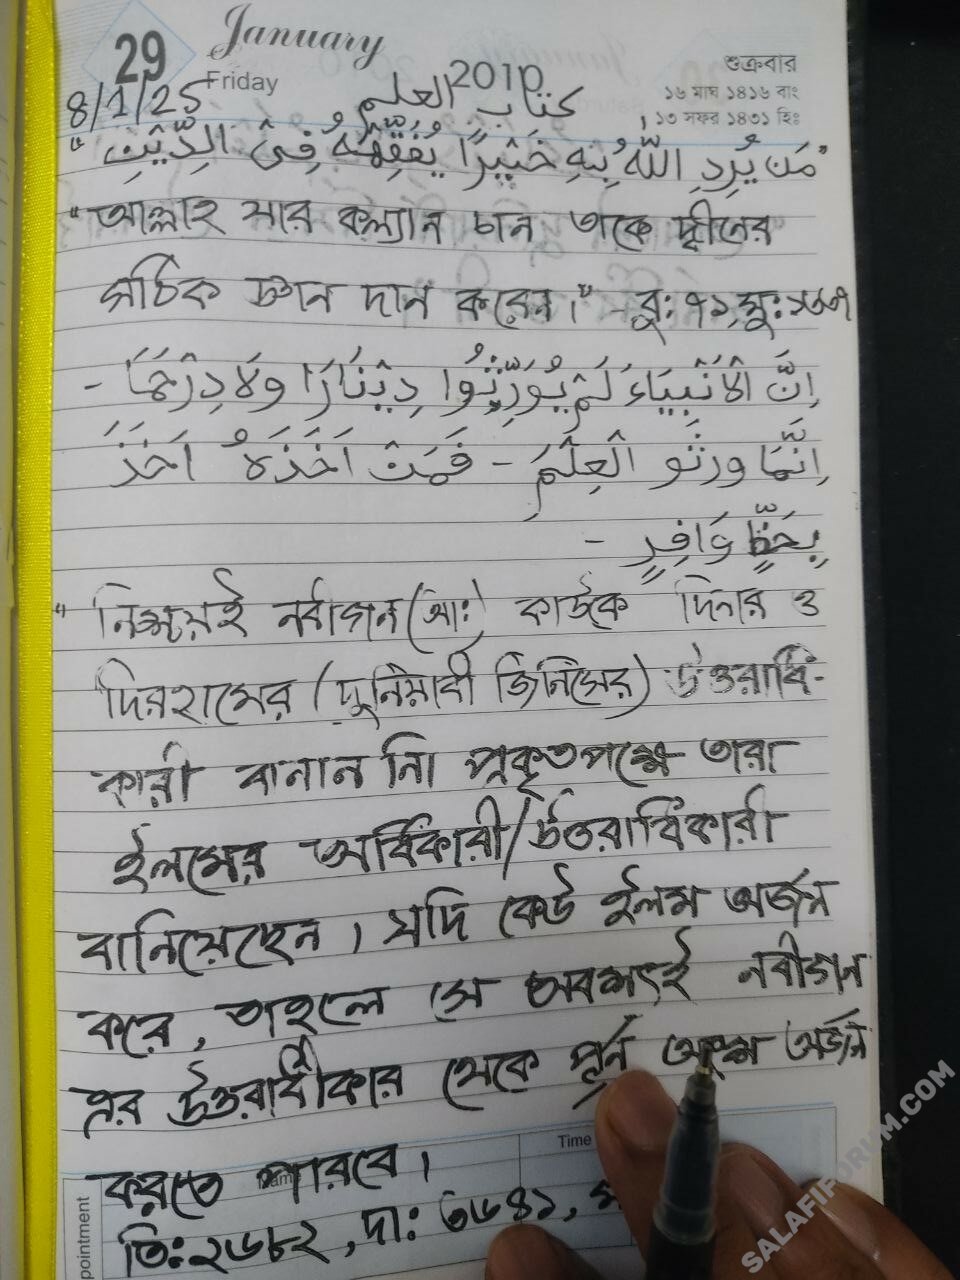 29 January
Friday 2010
শুক্রবার
১৬ মাঘ ১৪১৬ বাং
১৩ সফর ১৪৩১ হিঃ
8/1/25 كتاب العلم
"مَن يُرِدِ اللّٰهُ بِهِ خَيْرًا يُفَقِّهْهُ فِي الدِّيْنِ"
"আল্লাহ যার কল্যান চান তাকে দ্বীনের
সঠিক জ্ঞান দান করেন।" - বু: ৭১, মু:
اِنَّ الْاَنْبِيَاءَ لَمْ يُوَرِّثُوا دِيْنَارًا وَلَا دِرْهَمًا -
اِنَّمَا وَرَّثُو الْعِلْمَ - فَمَنْ اَخَذَهُ اَخَذَ
بِحَظٍّ وَافِرٍ -
"নিশ্চয়ই নবীগন (আঃ) কাউকে দিনার ও
দিরহামের (দুনিয়াবী জিনিসের) উত্তরাধি-
কারী বানান নি। প্রকৃতপক্ষে তারা
ইলমের অধিকারী/উত্তরাধিকারী
বানিয়েছেন। যদি কেউ ইলম অর্জন
করে, তাহলে সে অবশ্যই নবীগন
এর উত্তরাধীকার থেকে পূর্ন অংশ অর্জন
করতে পারবে।
তি: ২৬৮২, দা: ৩৬৪১,
Time
pointment
SALAFIFORUM.COM